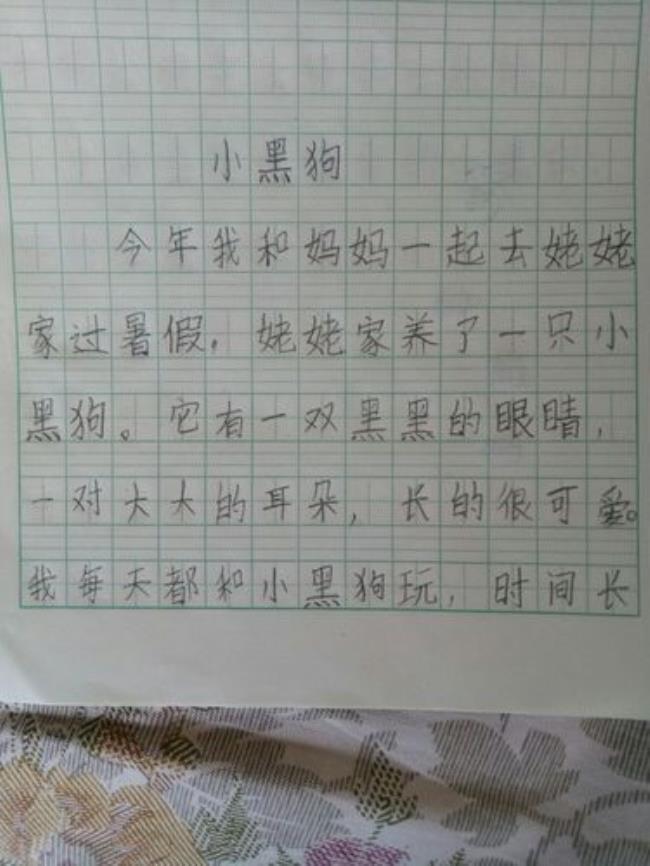 小黑狗
今年我和妈妈一起去姥姥
家过暑假。姥姥家养了一只小
黑狗。它有一双黑黑的眼睛，
一对大大的耳朵，长的很可爱。
我每天都和小黑狗玩，时间长